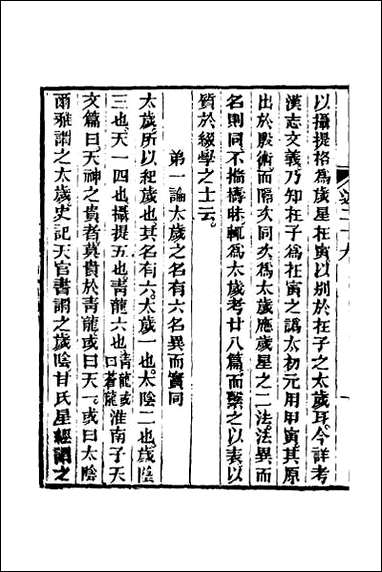 以攝提格爲歲星在寅以别於在子之太歲耳今詳考
漢志文義乃知在子爲在寅之譌太初元用甲寅其原
出於殷術而隔次同次爲太歲應歲星之二法法異而
名則同不揣檮昧輒爲太歲考廿八篇而繫之以表以
質於綴學之士云。
第一論太歲之名有六名異而實同
太歲所以紀歲也其名有六太歲一也太陰二也歲陰
三也天一四也攝提五也青龍六也青龍或曰蒼龍淮南子天
文篇曰天神之貴者莫貴於青龍或曰天一或曰太陰
爾雅謂之太歲史記天官書謂之歲陰甘氏星經謂之